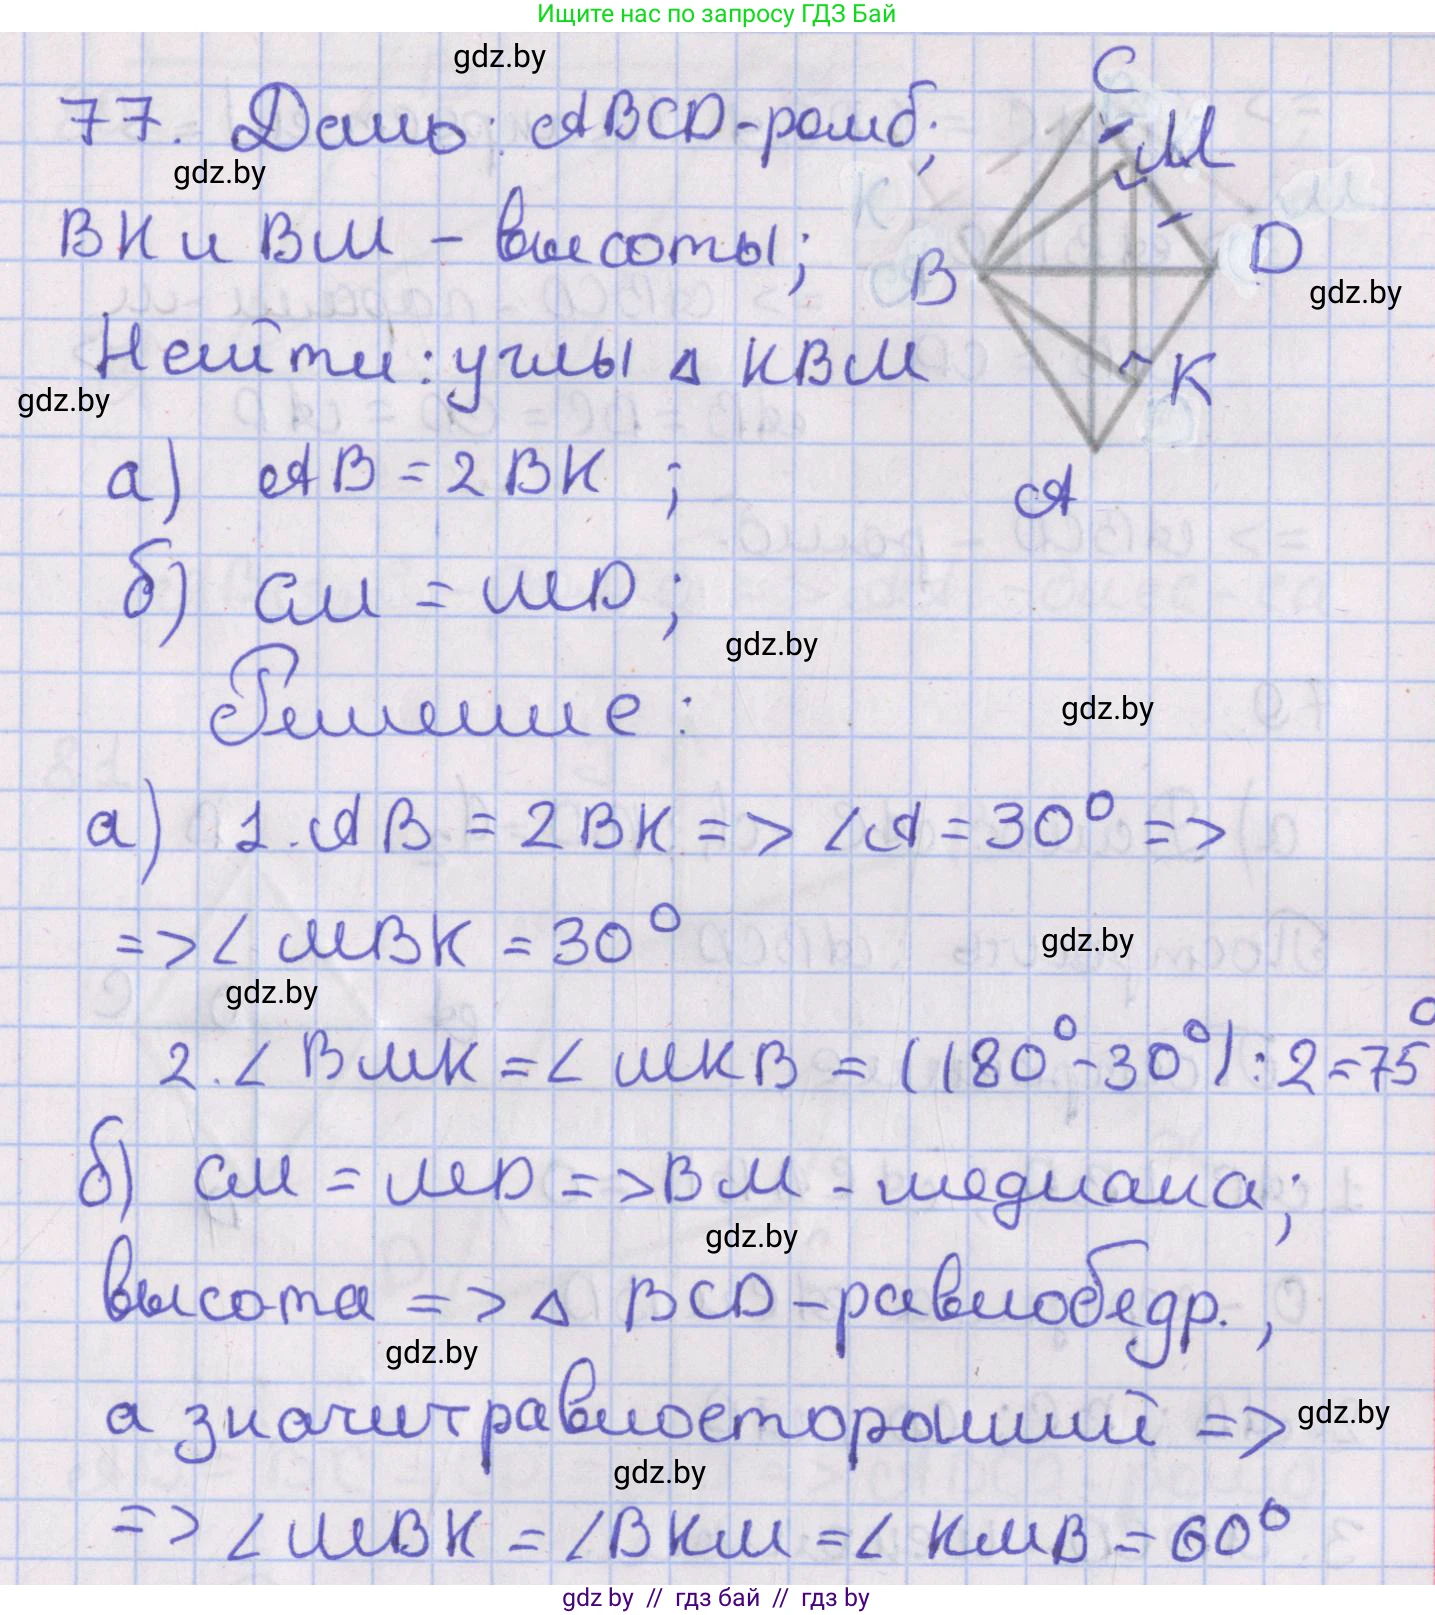 Ищите нас по запросу ГДЗ Бай
gdz.by
77. Дано: ABCD-ромб;
gdz.by
BK и BM - высоты;
Найти: углы ∆ KBM
gdz.by
C
M
B
D
gdz.by
K
A
а) AB = 2BK ;
б) CM = MD;
gdz.by
Решение:
gdz.by
а) 1. AB = 2BK => ∠A = 30° =>
=> ∠MBK = 30°
gdz.by
gdz.by
2. ∠BMK = ∠MKB = (180°-30°):2=75°
б) CM = MD => BM - медиана;
gdz.by
высота => ∆ BCD-равнобедр.,
gdz.by
а значит равносторонний =>
gdz.by
gdz.by
=> ∠MBK = ∠BKM = ∠KMB = 60°
gdz.by // гдз бай // гдз by